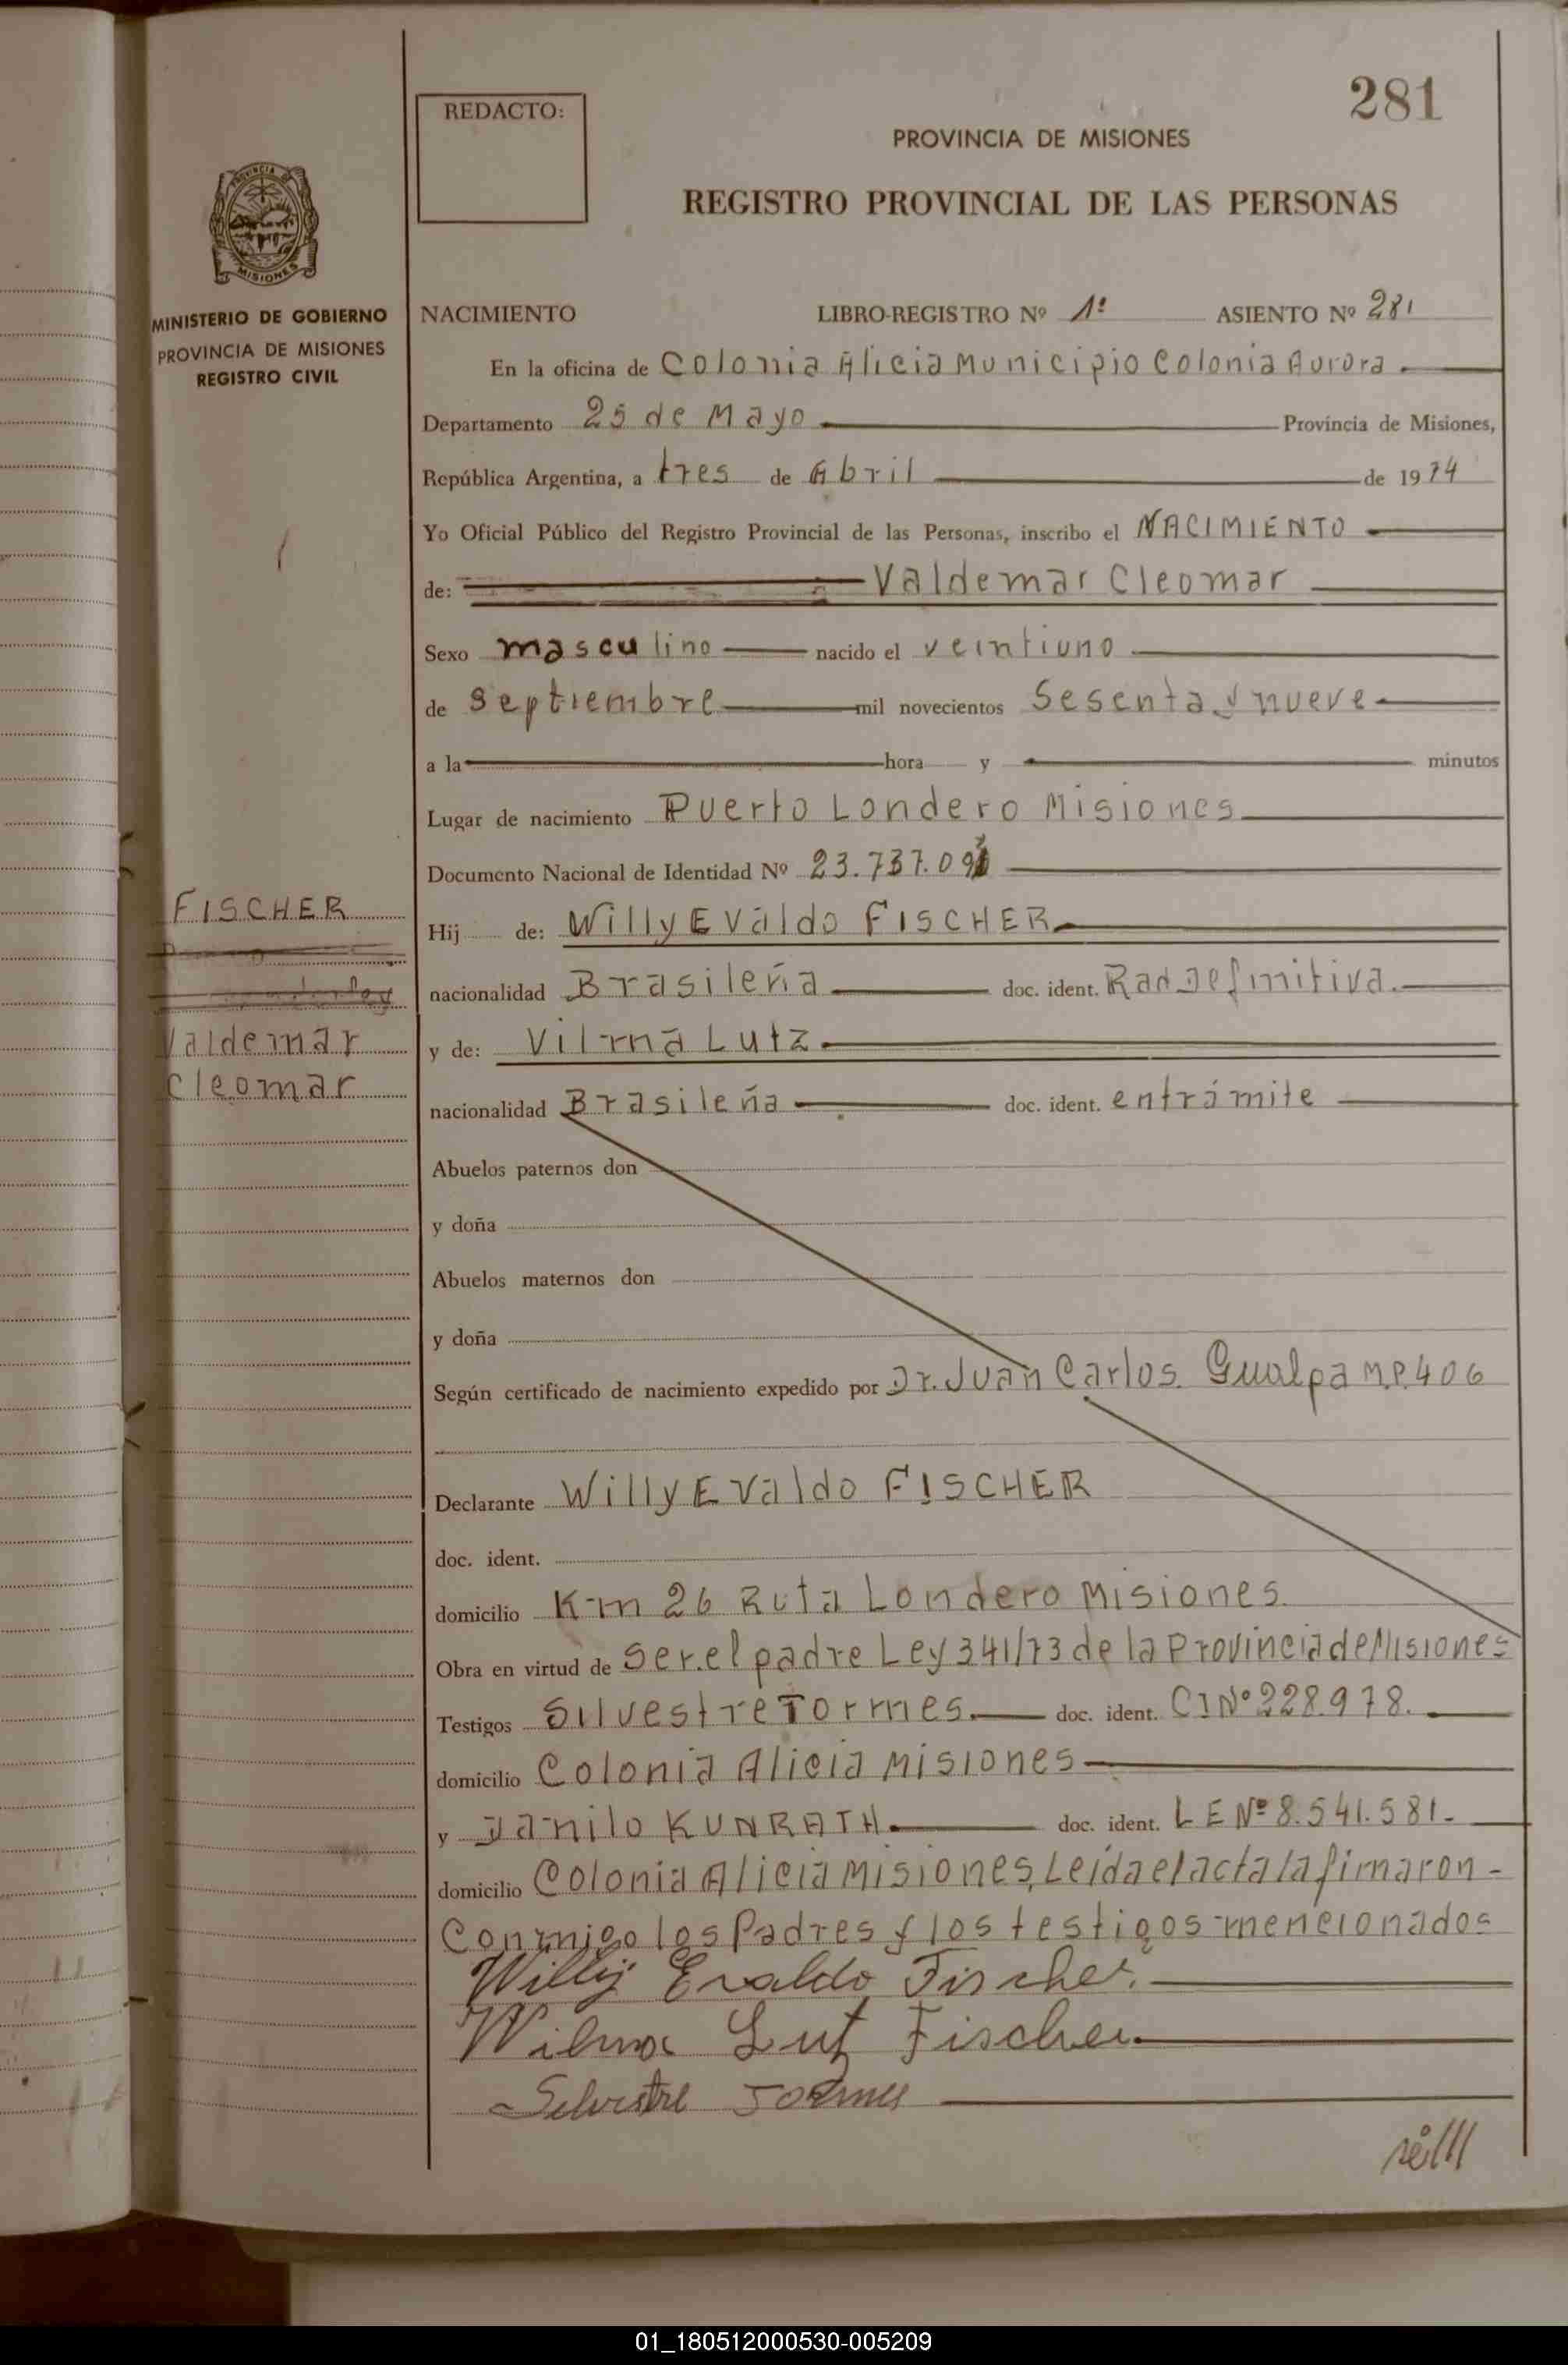 281
REDACTO:
PROVINCIA DE MISIONES
REGISTRO PROVINCIAL DE LAS PERSONAS
PROVINCIA DE
MISIONES
MINISTERIO DE GOBIERNO
PROVINCIA DE MISIONES
REGISTRO CIVIL
NACIMIENTO LIBRO-REGISTRO Nº 1º ASIENTO Nº 281
En la oficina de Colonia Alicia Municipio Colonia Aurora.
Departamento 25 de Mayo Provincia de Misiones,
República Argentina, a tres de Abril de 1974
Yo Oficial Público del Registro Provincial de las Personas, inscribo el NACIMIENTO
de: Valdemar Cleomar
Sexo masculino nacido el veintiuno
de Septiembre mil novecientos Sesenta y nueve
a la hora y minutos
Lugar de nacimiento Puerto Londero Misiones
Documento Nacional de Identidad Nº 23.737.09
FISCHER
Valdemar
Cleomar
Hij de: Willy Evaldo FISCHER
nacionalidad Brasileña doc. ident. Rad Definitiva.
y de: Vilma Lutz
nacionalidad Brasileña doc. ident. entrámite
Abuelos paternos don
y doña
Abuelos maternos don
y doña
Según certificado de nacimiento expedido por Dr. Juan Carlos Gualpa M.P. 406
Declarante Willy Evaldo FISCHER
doc. ident.
domicilio Km 26 Ruta Londero Misiones.
Obra en virtud de Ser el padre Ley 341/73 de la Provincia de Misiones
Testigos Silvestre Tormes. doc. ident. CI Nº 228.978.
domicilio Colonia Alicia Misiones
y Danilo KUNRATH. doc. ident. LE Nº 8.541.581.
domicilio Colonia Alicia Misiones, Leída el acta la firmaron-
Conmigo los Padres y los testigos mencionados
Willy Evaldo Fischer.
Wilma Lut Fischer
Silvestre Tormes
01_180512000530-005209